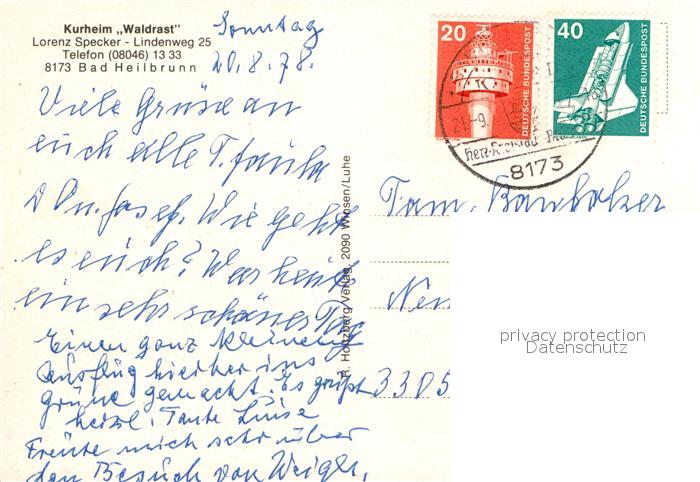 Kurheim „Waldrast"
Lorenz Specker - Lindenweg 25
Telefon (08046) 13 33
8173 Bad Heilbrunn
Sonntag
20.8.78.
Viele Grüse an
euch alle T. Paula
Josef. Wie geht
es euch? War heute
ein sehr schöner Tag
Einen ganz kleinen
Ausflug hierher ins
Grüne gemacht. Es grüßt
herzl. Tante Luise
Freute mich sehr über
den Besuch von
R. Holtzberg Verlag, 2090 Winsen/Luhe
20
DEUTSCHE BUNDESPOST
40
DEUTSCHE BUNDESPOST
8173
Fam.
3305
privacy protection
Datenschutz